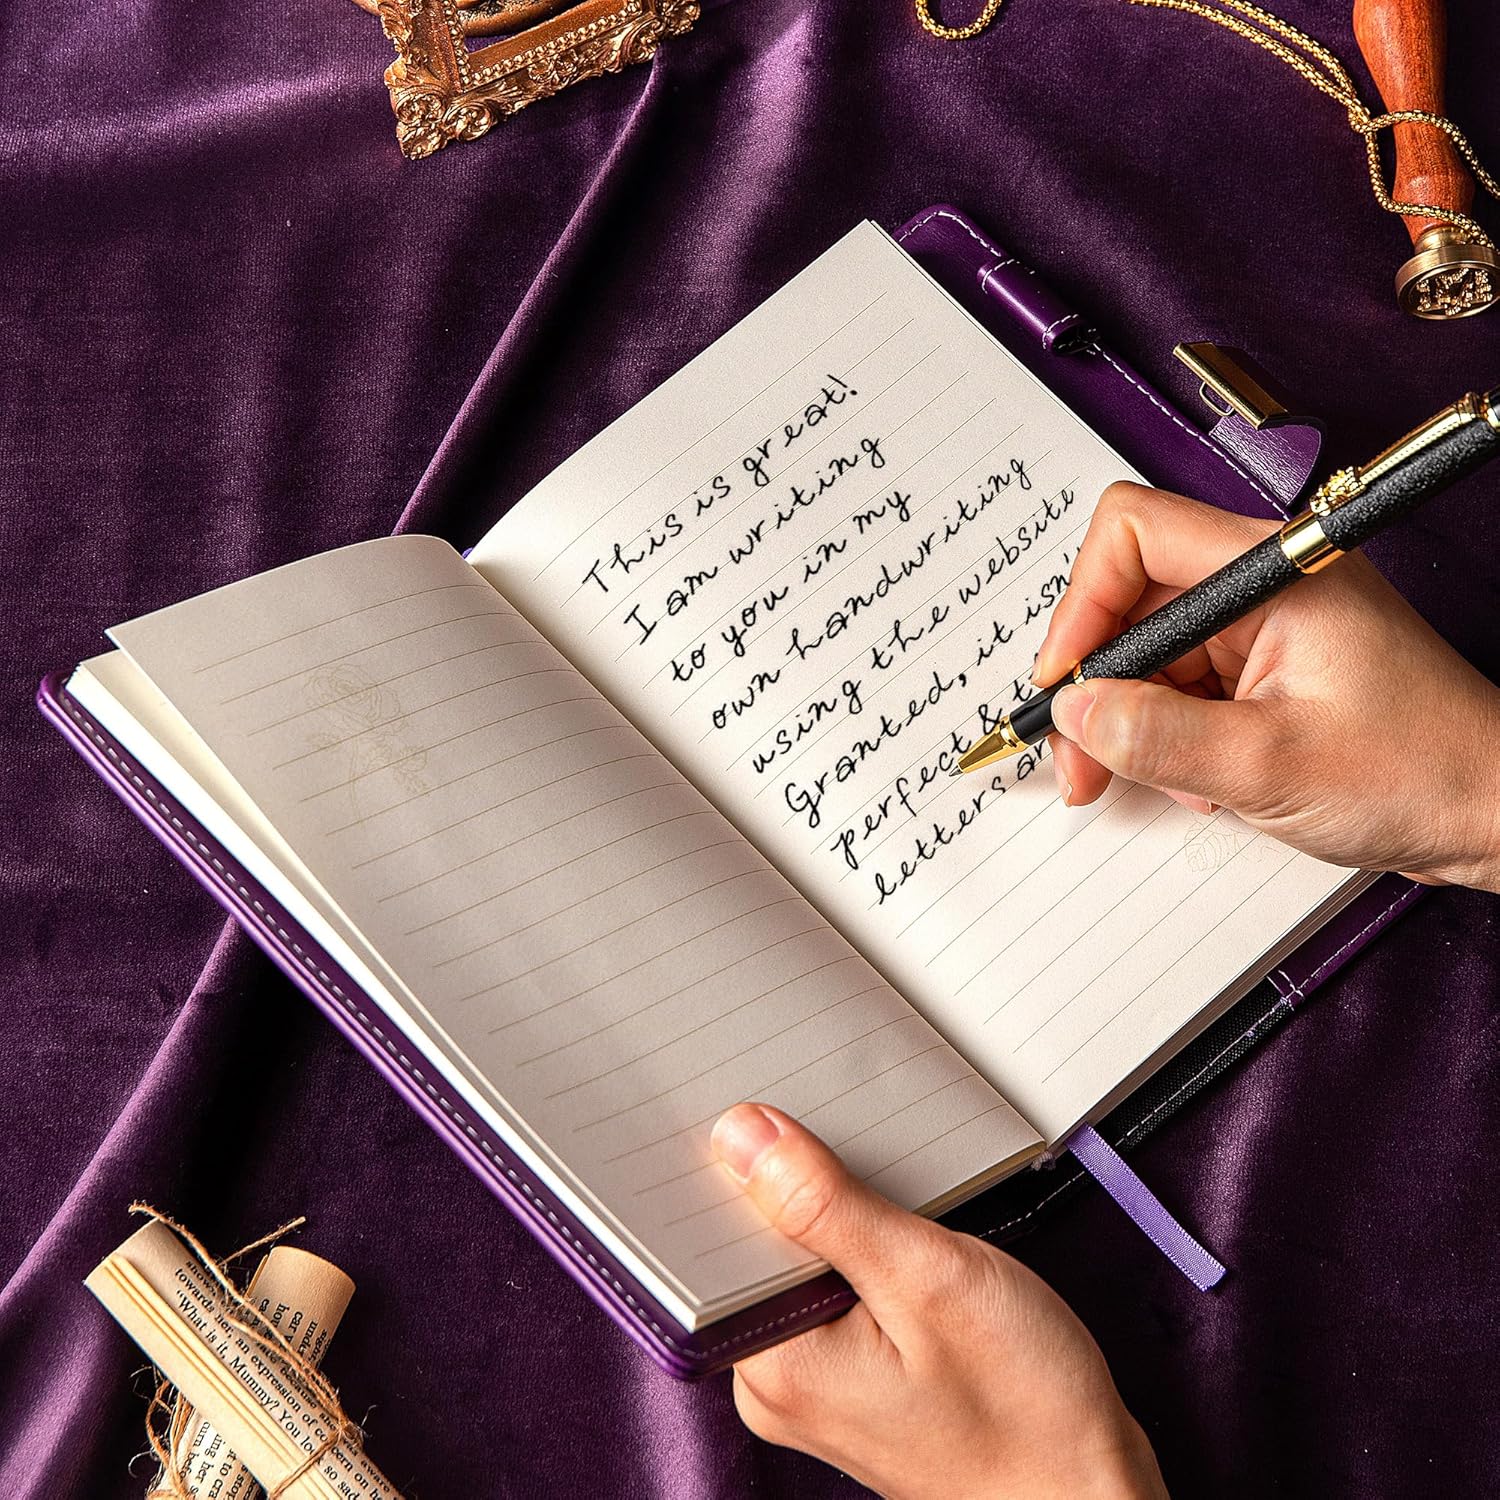 This is great!
I am writing
to you in my
own handwriting
using the website
Granted, it isn't
perfect &
letters
shows
towards her, an expression of concern on
"What is it, Mummy? You look so sad